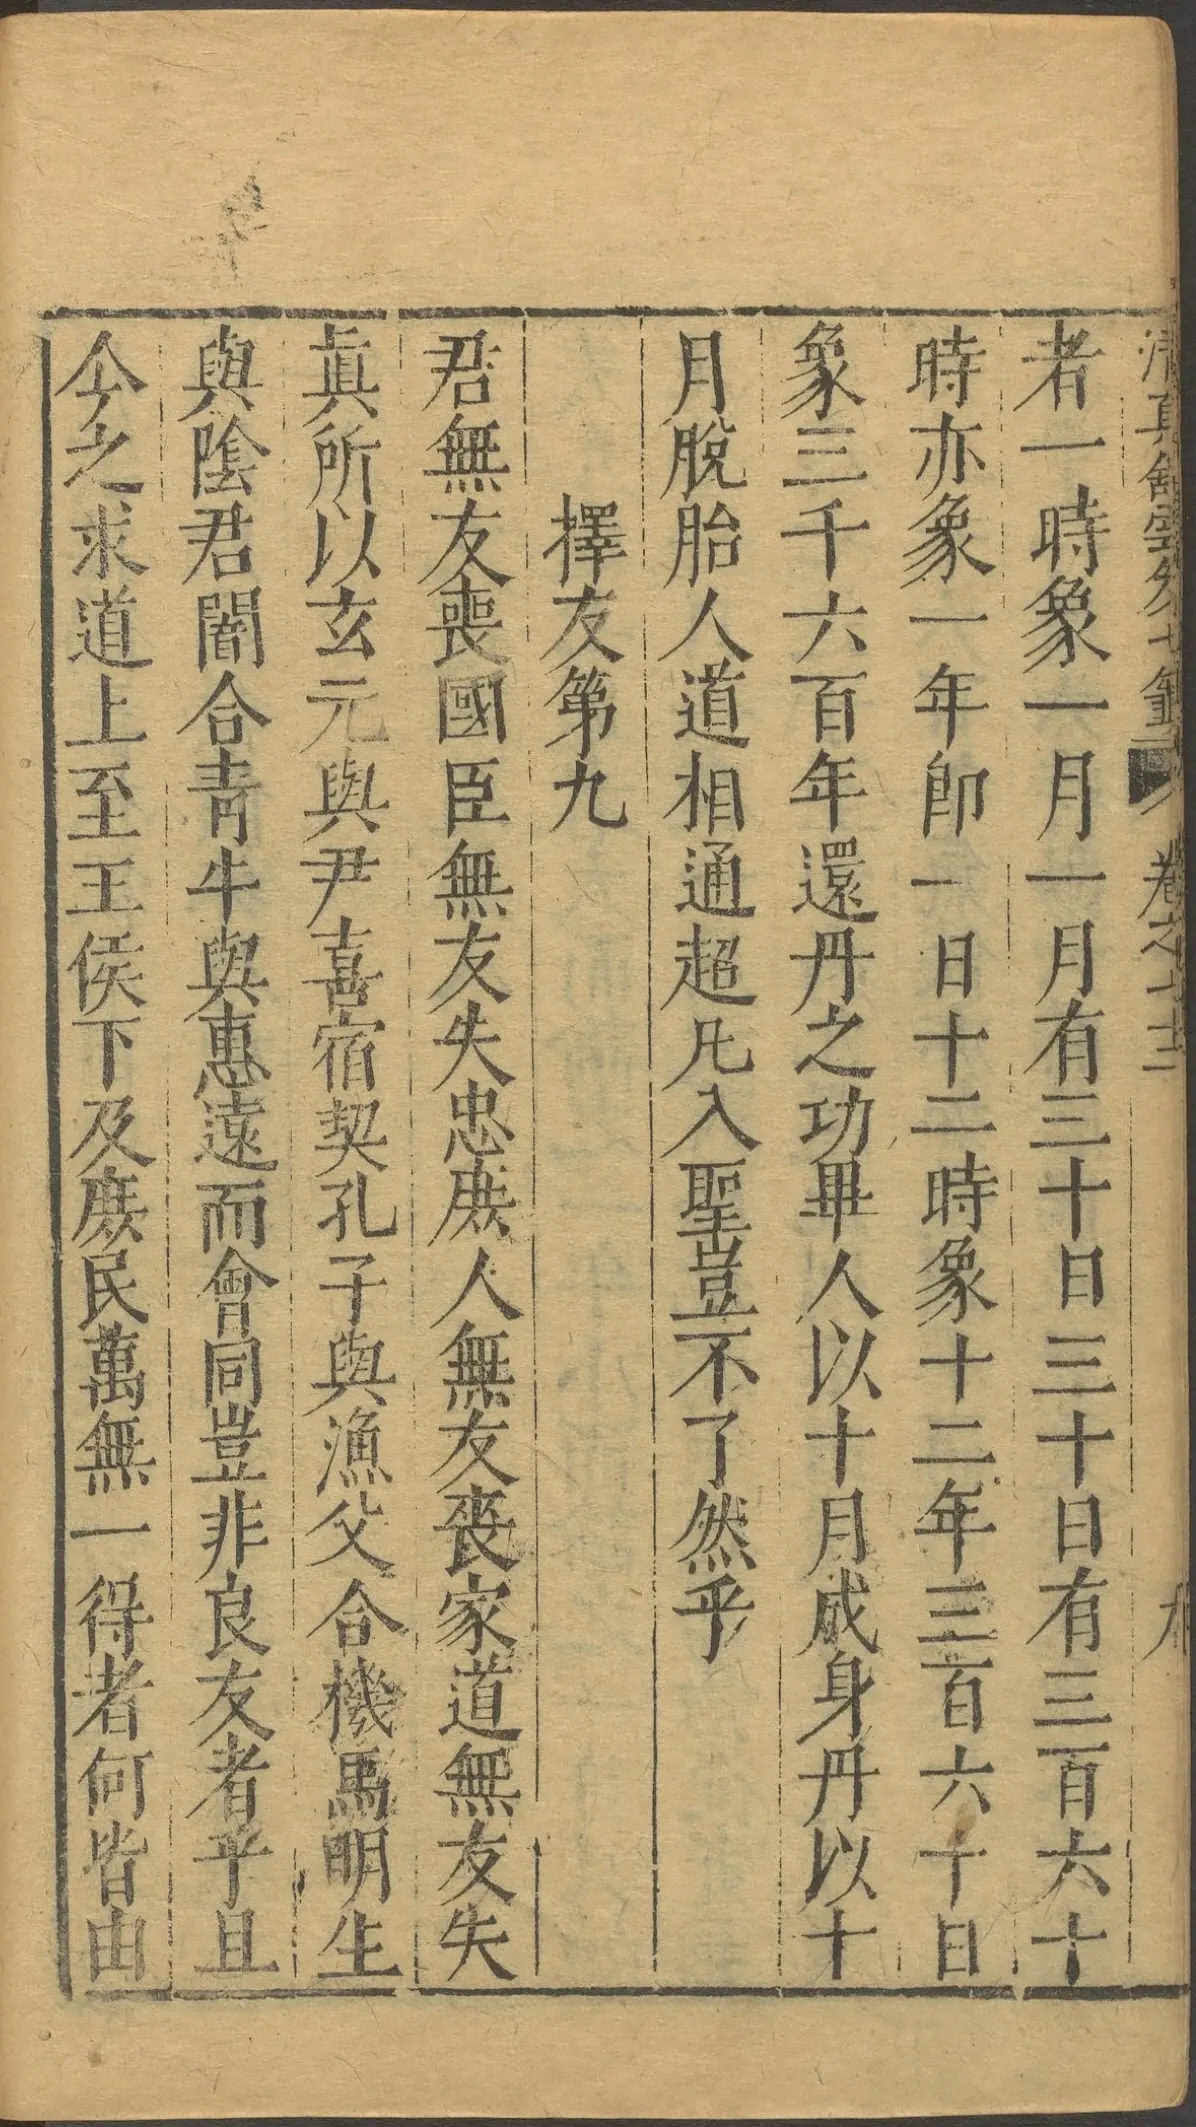 者一時象一月一月有三十日三十日有三百六十
時亦象一年卽一日十二時象十二年三百六十日
象三千六百年還丹之功畢人以十月成身丹以十
月脫胎人道相通超凡入聖豈不了然乎
擇友第九
君無友喪國臣無友失忠庶人無友喪家道無友失
眞所以玄元與尹喜宿契孔子與漁父合機馬明生
與陰君闇合青牛與惠遠而會同豈非良友者乎且
今之求道上至王侯下及庶民萬無一得者何皆由